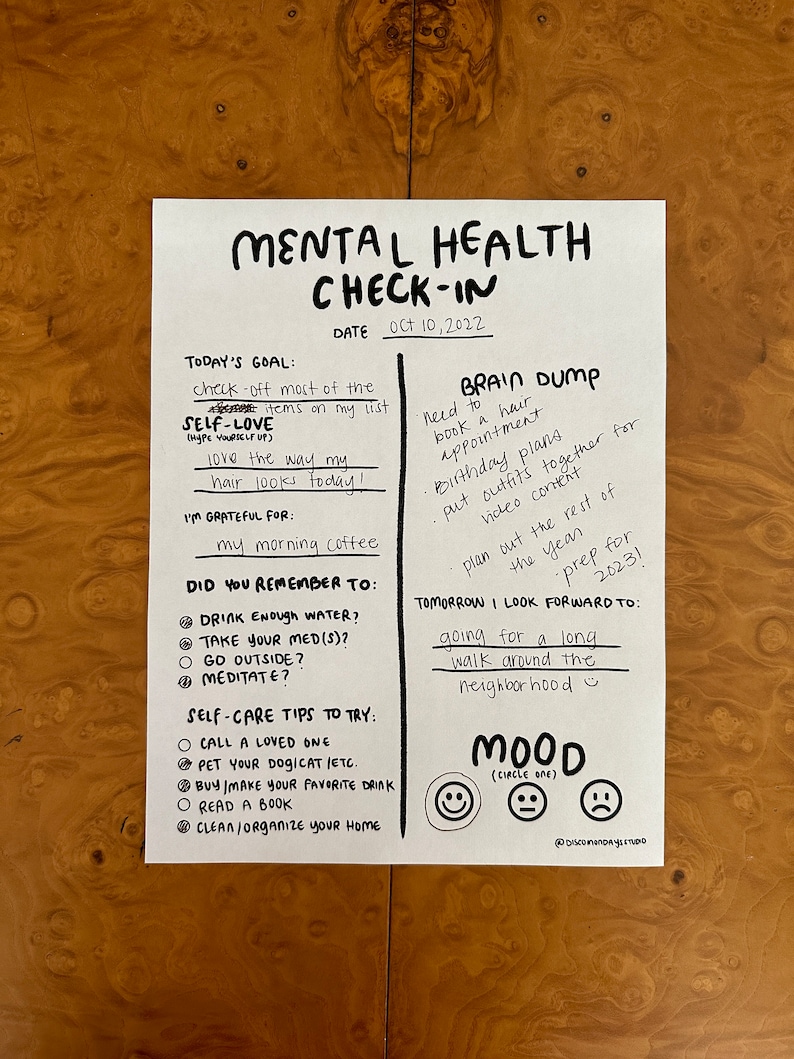 MENTAL HEALTH
CHECK-IN
DATE OCT 10, 2022
TODAY'S GOAL:
check-off most of the
items on my list
SELF-LOVE
(HYPE YOURSELF UP)
love the way my
hair looks today!
I'M GRATEFUL FOR:
my morning coffee
DID YOU REMEMBER TO:
DRINK ENOUGH WATER?
TAKE YOUR MED(S)?
GO OUTSIDE?
MEDITATE?
SELF-CARE TIPS TO TRY:
CALL A LOVED ONE
PET YOUR DOG/CAT/ETC.
BUY/MAKE YOUR FAVORITE DRINK
READ A BOOK
CLEAN/ORGANIZE YOUR HOME
BRAIN DUMP
· need to
book a hair
appointment
· Birthday plans
· put outfits together for
video content
· plan out the rest of
the year
· prep for
2023!
TOMORROW I LOOK FORWARD TO:
going for a long
walk around the
neighborhood
MOOD
(CIRCLE ONE)
@DISCOMONDAYSSTUDIO